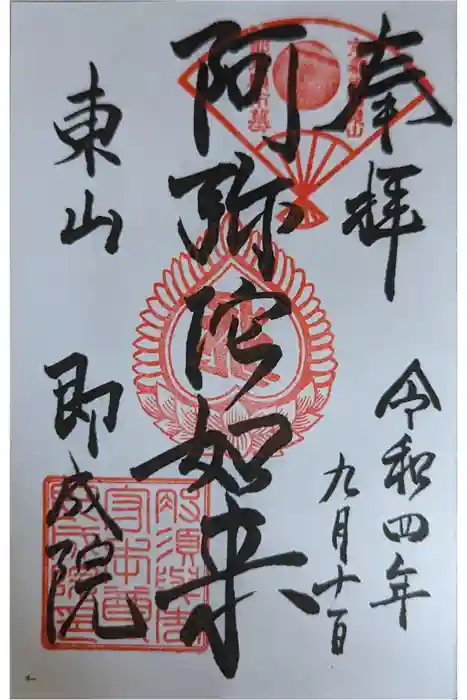 奉拝
令和四年
九月十日
阿弥陀如来
東山
即成院